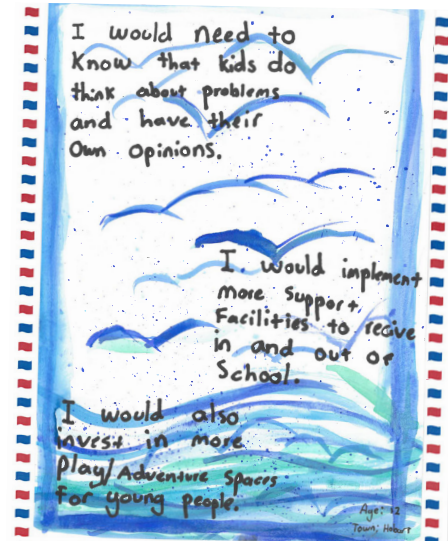 I would need to
Know that kids do
think about problems
and have their
Own opinions.
I would implement
more support
Facilities to recive
in and out of
School.
I would also
invest in more
play/Adventure Spaces
For young people.
Age: 12
Town: Hobart